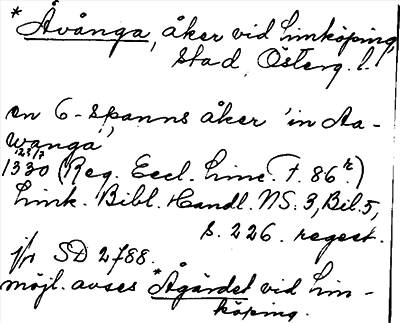 * Åvånga, åker vid Linköping,
stad, Österg. l.
en 6-spanns åker 'in Aa-
wanga'
23/7
1330 (Reg. Eccl. Linc. f. 86 r.)
Link. Bibl. Handl. NS. 3, Bil. 5,
s. 226. regest.
jfr SD 2788.
möjl. avses *Ågärdet vid Lin-
köping.